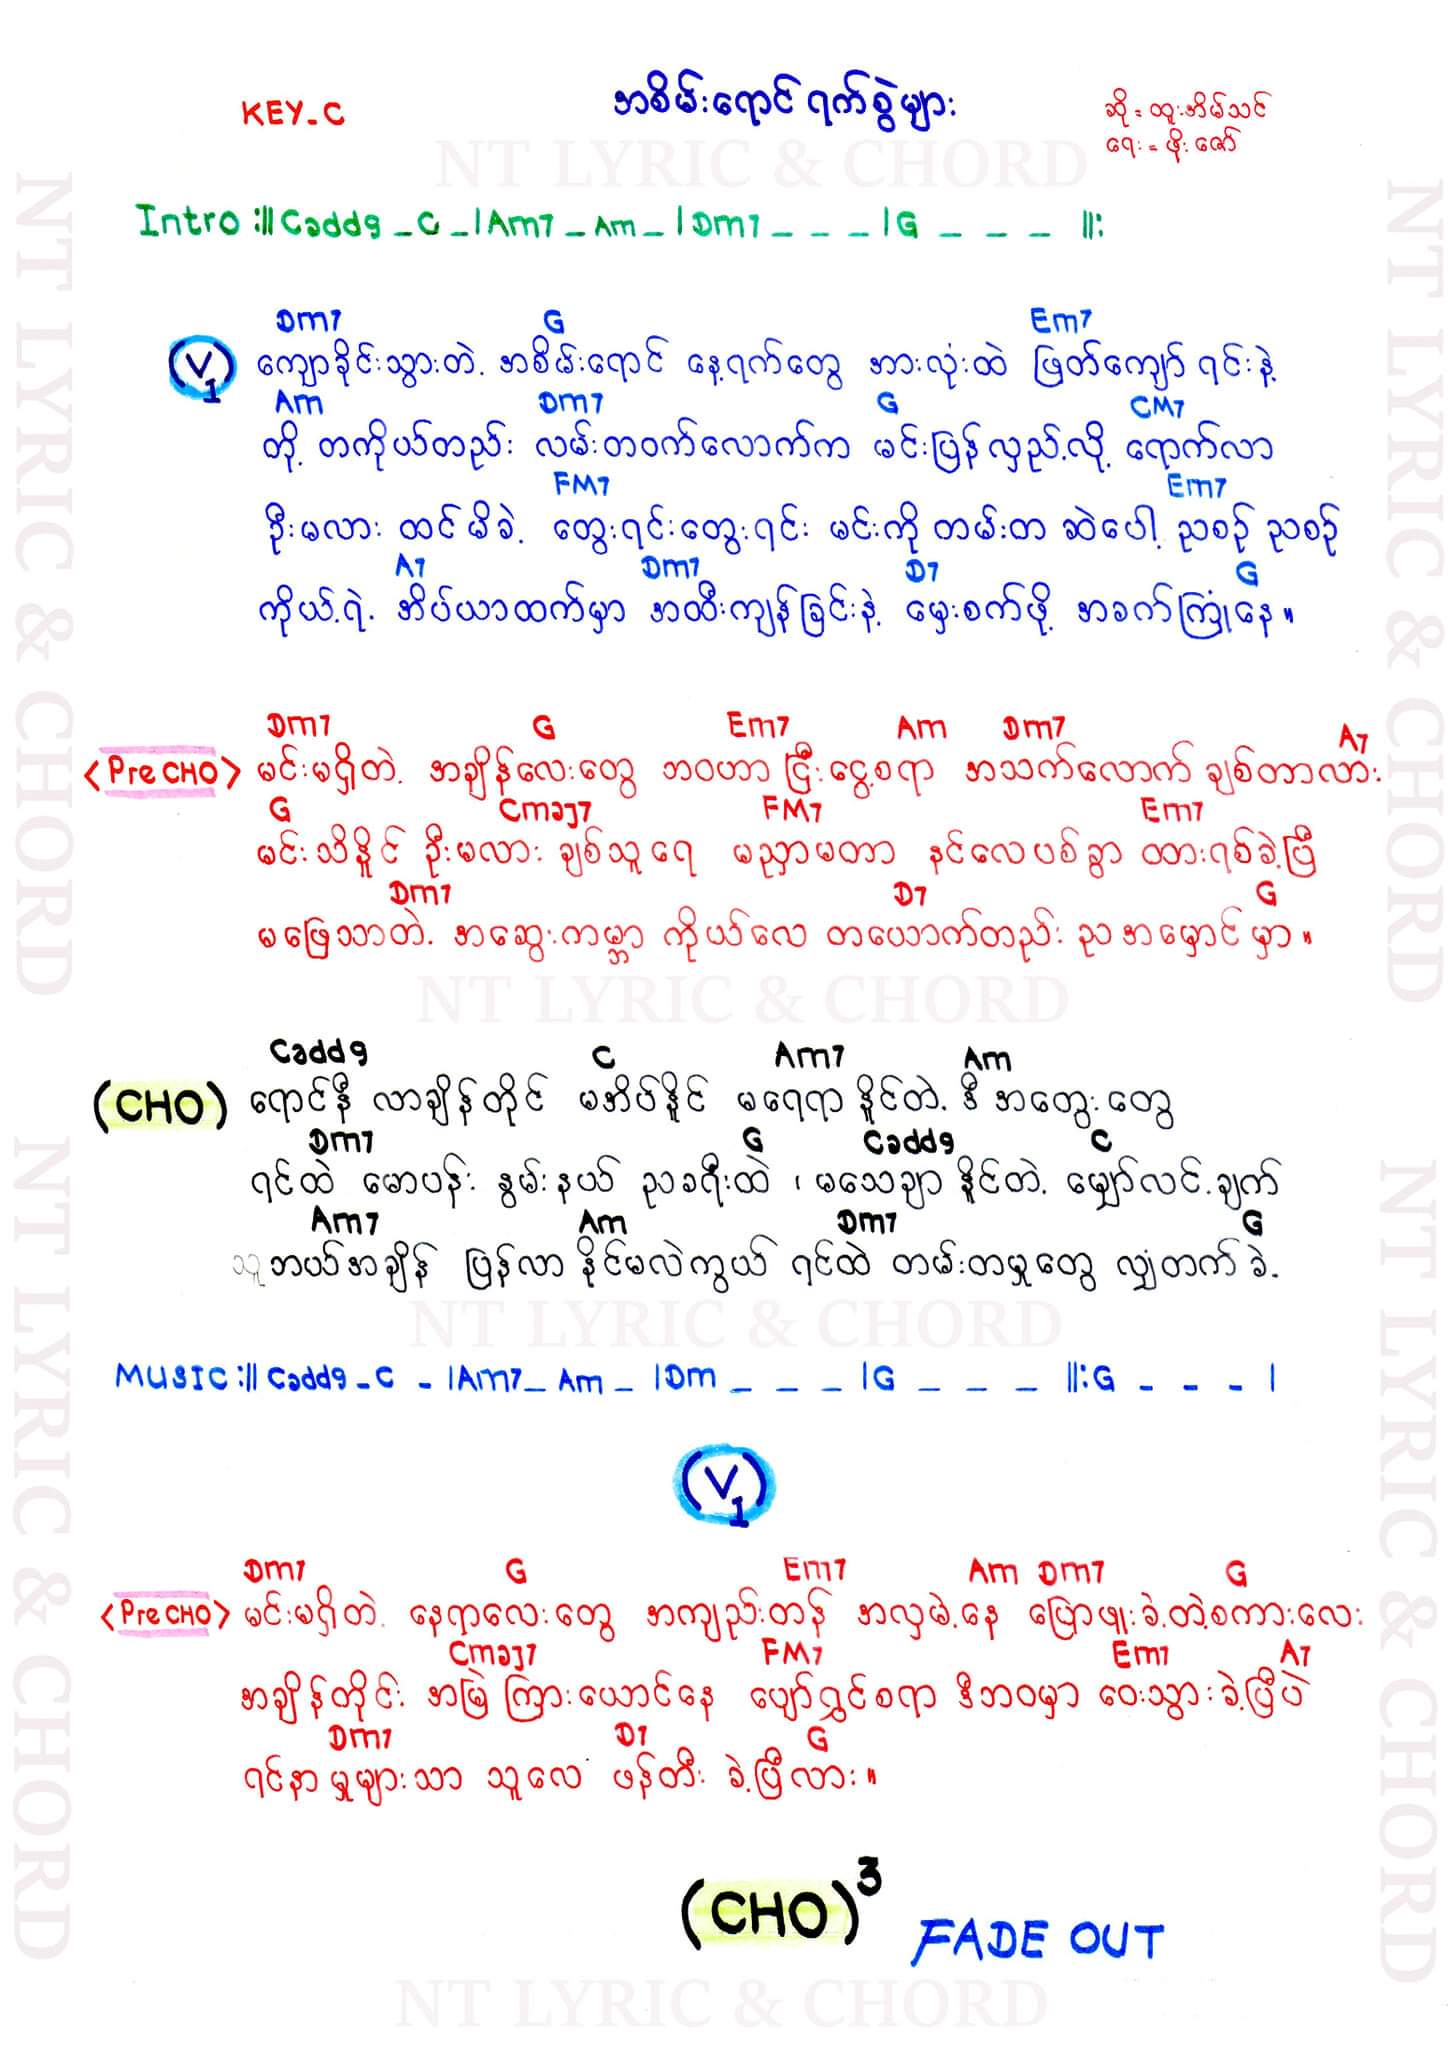 KEY_C
အစိမ်းရောင် ရက်စွဲများ
ဆို = ထူးအိမ်သင်
ရေး = ဖိုးဇော်
NT LYRIC & CHORD
Intro :|| Cadd9 _ C _ | Am7 _ Am _ | Dm7 _ _ _ | G _ _ _ ||:
Dm7 G Em7
(V1) ကျောခိုင်းသွားတဲ့ အစိမ်းရောင် နေ့ရက်တွေ အားလုံးထဲ ဖြတ်ကျော် ရင်းနဲ့
Am Dm7 G CM7
တို့ တကိုယ်တည်း လမ်းတဝက်လောက်က မင်းပြန်လှည့်လို့ ရောက်လာ
FM7 Em7
ဦးမလား ထင်မိခဲ့ တွေးရင်းတွေးရင်း မင်းကို တမ်းတ ဆဲပေါ့ ညစဉ် ညစဉ်
A7 Dm7 D7 G
ကိုယ့်ရဲ့ အိပ်ယာထက်မှာ အထီးကျန်ခြင်းနဲ့ မှေးစက်ဖို့ အခက်ကြုံနေ။
Dm7 G Em7 Am Dm7 A7
<Pre CHO> မင်းမရှိတဲ့ အချိန်လေးတွေ ဘဝဟာ ငြီးငွေ့စရာ အသက်လောက် ချစ်တာလား
G Cmaj7 FM7 Em7
မင်းသိနိုင် ဦးမလား ချစ်သူရေ မညှာမတာ နင်လေပစ်ခွာ ထားရစ်ခဲ့ပြီ
Dm7 D7 G
မဖြေသာတဲ့ အဆွေးကမ္ဘာ ကိုယ်လေ တယောက်တည်း ညအမှောင် မှာ။
NT LYRIC & CHORD
Cadd9 C Am7 Am
(CHO) ရောင်နီ လာချိန်တိုင် မအိပ်နိုင် မရေရာနိုင်တဲ့ ဒီ အတွေးတွေ
Dm7 G Cadd9 C
ရင်ထဲ မောပန်း နွမ်းနယ် ညခရီးထဲ ၊ မသေချာ နိုင်တဲ့ မျှော်လင့်ချက်
Am7 Am Dm7 G
သူဘယ်အချိန် ပြန်လာ နိုင်မလဲကွယ် ရင်ထဲ တမ်းတမှုတွေ လျှံတက်ခဲ့
NT LYRIC & CHORD
MUSIC :|| Cadd9 _ C _ | Am7 _ Am _ | Dm _ _ _ | G _ _ _ ||: G _ _ _ |
(V1)
Dm7 G Em7 Am Dm7 G
<Pre CHO> မင်းမရှိတဲ့ နေရာလေးတွေ အကျည်းတန် အလှမဲ့နေ ပြောဖူးခဲ့တဲ့စကားလေး
Cmaj7 FM7 Em7 A7
အချိန်တိုင်း အမြဲ ကြားယောင်နေ ပျော်ရွှင်စရာ ဒီဘဝမှာ ဝေးသွားခဲ့ပြီပဲ
Dm7 D7 G
ရင်နာမှုများသာ သူလေ ဖန်တီး ခဲ့ပြီလား။
(CHO)³ FADE OUT
NT LYRIC & CHORD
NT LYRIC & CHORD
NT LYRIC & CHORD
NT LYRIC & CHORD
NT LYRIC & CHORD